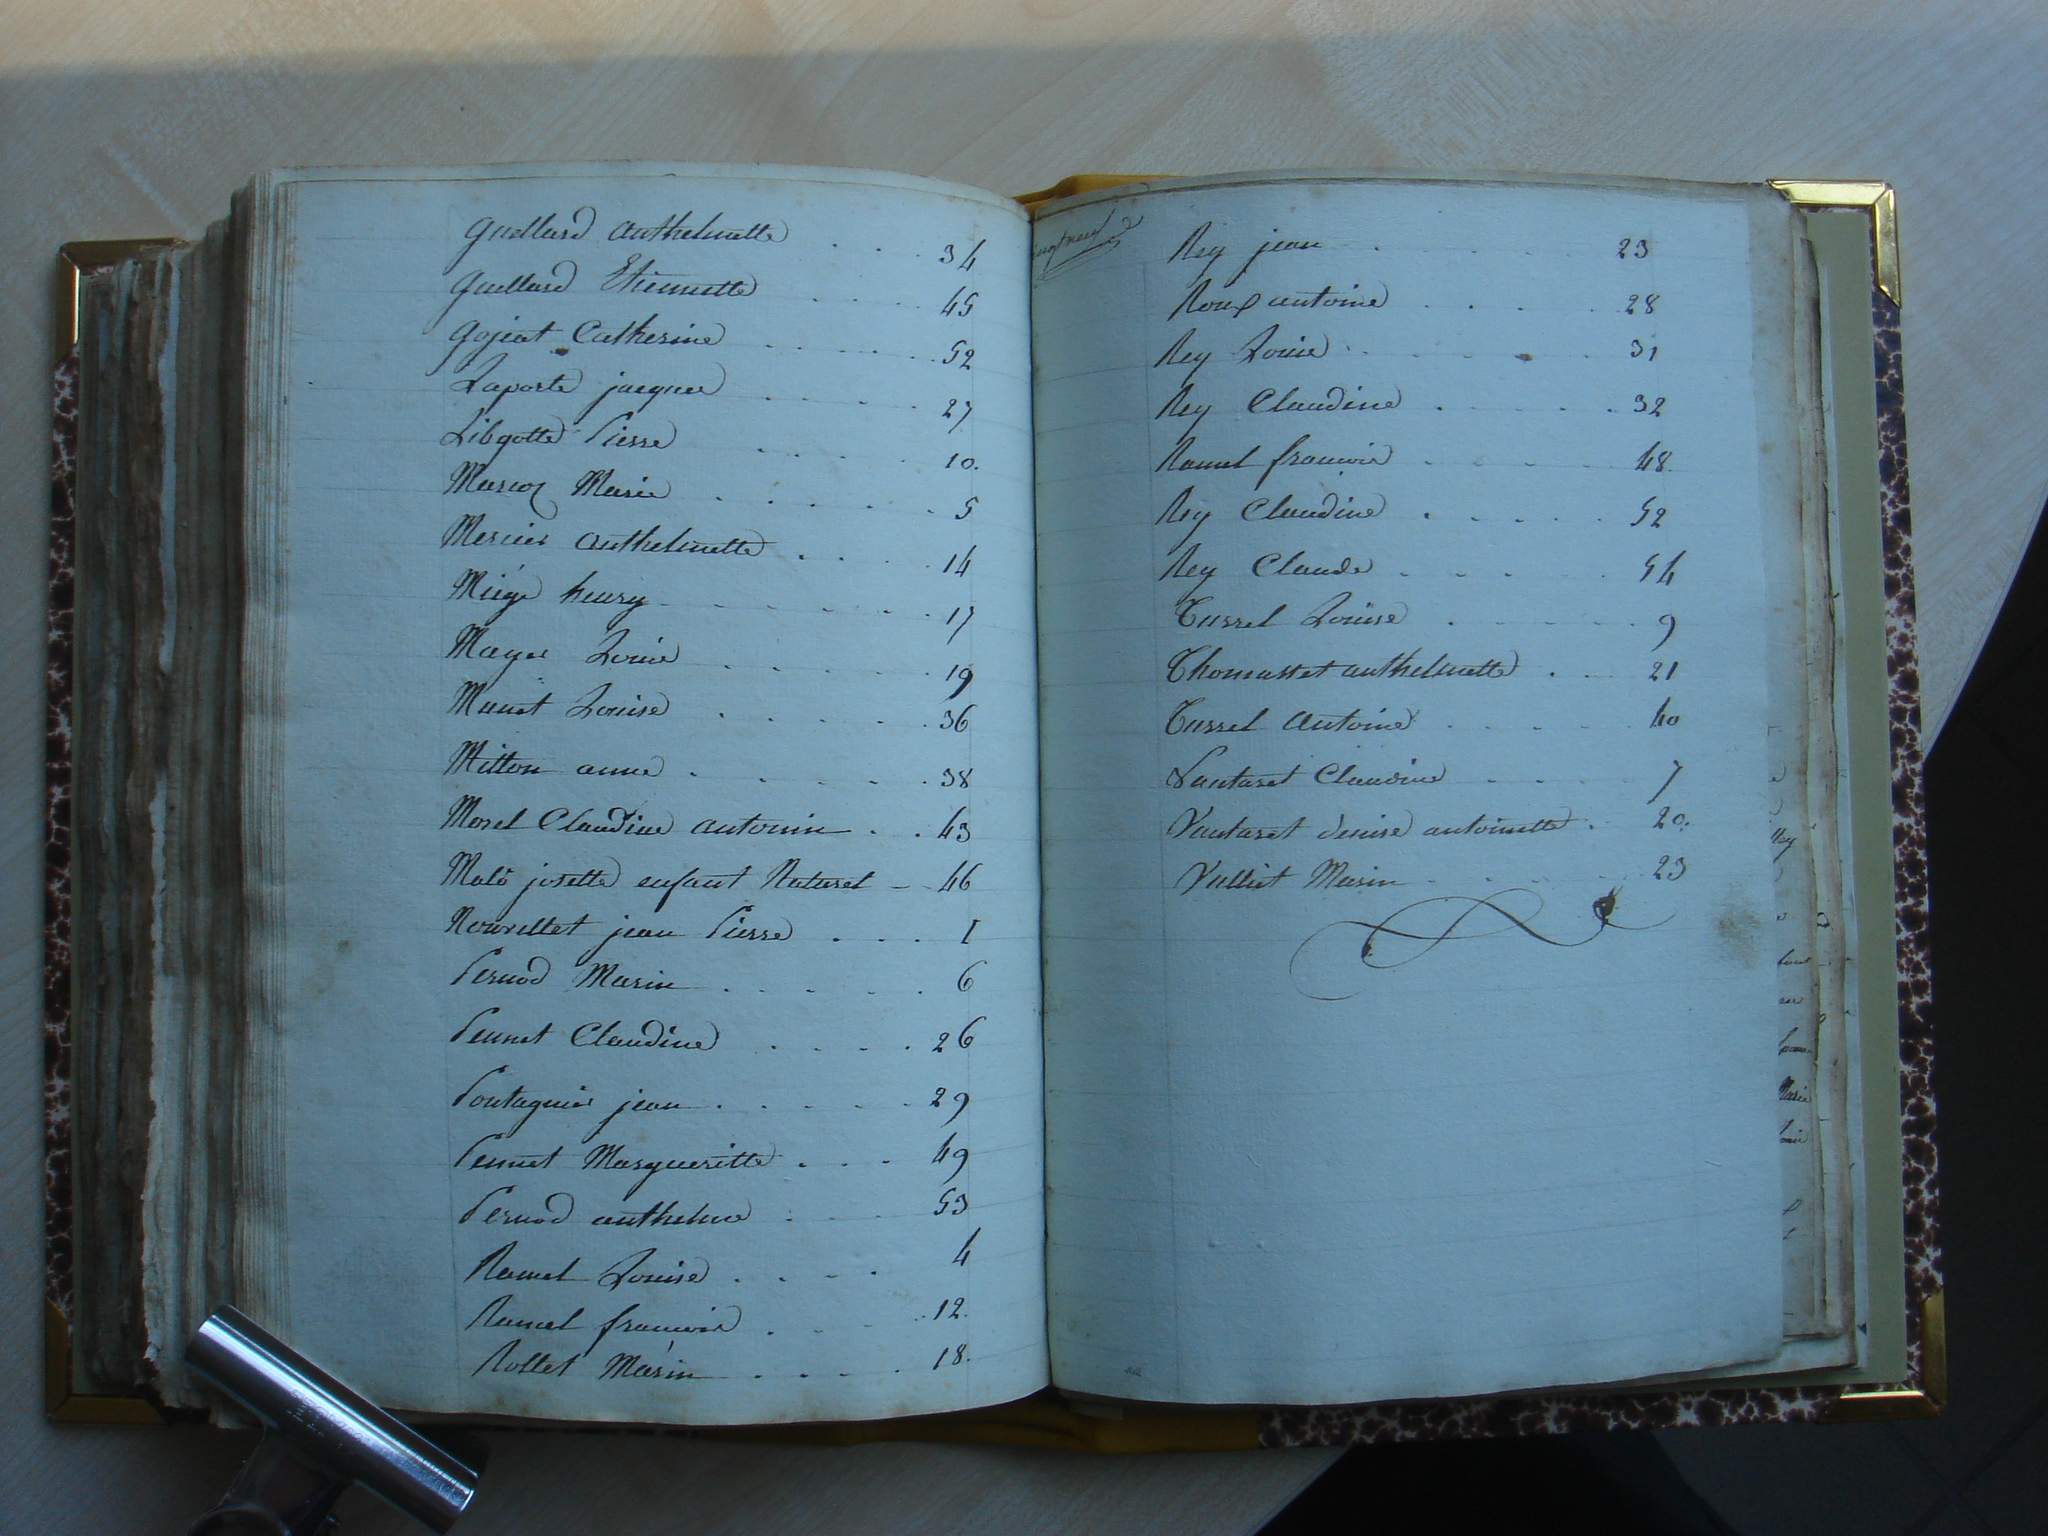 guillard anthelmette . . . 34
guillard Etiennette . . . . 45
gojat Catherine . . . . 52
Laporte jacques . . . . 27
Libgotte Pierre . . . . 10.
Marcoz Marie . . . . . 5
Mercier anthelmette . . . . 14
Miége henry . . . . . 17
Mayer Louis . . . . . 19
Manet Louise . . . . . 36
Mitton anne . . . . . 38
Morel Claudine antonin . . 43
Malô josette enfant Naturel - 46
Nouvellet jean Pierre . . . 1
Pernod Marin . . . . . 6
Pennet Claudine . . . . 26
Pontagnier jean . . . . . 29
Pennet Margueritte . . . 49
Pernod anthelme . . . 53
Ramel Louise . . . . 4
Ramel francois . . . . 12.
Rollet Marin . . . . 18.
vingt neuf
Rey jean . . . . . 23
Roux antoine . . . . 28
Rey Louis . . . . . 31
Rey Claudine . . . . 32
Ramel francois . . . . 48.
Rey Claudine . . . . . 52
Rey Claude . . . . . 54
Turrel Louise . . . . 9
Thomasset anthelmette . . 21
Turrel antoine . . . . 40
Vautaret Claudine . . . 7
Vautaret denise antoinette . 20.
Vulliet Marin . . . . . 23